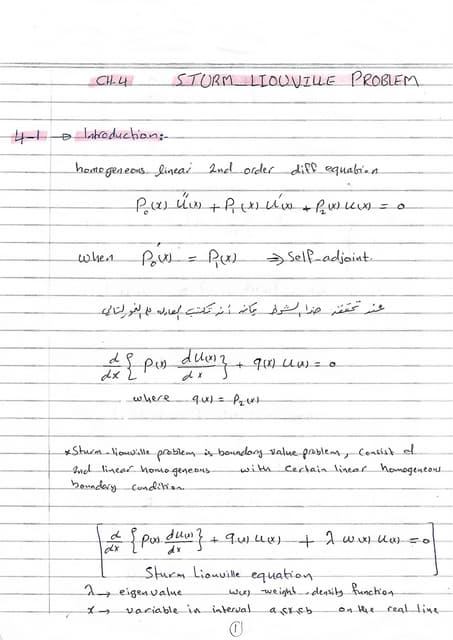 CH.4 STURM_LIOUVILLE PROBLEM
4-1 → Introduction:-
homogeneous linear 2nd order diff equation
P₀(x) u''(x) + P₁(x) u'(x) + P₂(x) u(x) = 0
when P₀'(x) = P₁(x) ⇒ Self-adjoint.
عند تحقق هذا الشرط يمكن أن تكتب المعادلة على النحو التالي
d/dx { P(x) du(x)/dx } + q(x) u(x) = 0
where q(x) = P₂(x)
* Sturm-liouville problem is boundary value problem, consist of
2nd linear homogeneous with certain linear homogeneous
boundary condition.
d/dx { P(x) du(x)/dx } + q(x) u(x) + λ w(x) u(x) = 0
Sturm Liouville equation
λ → eigenvalue w(x) → weight-density function
x → variable in interval a≤x≤b on the real line
1